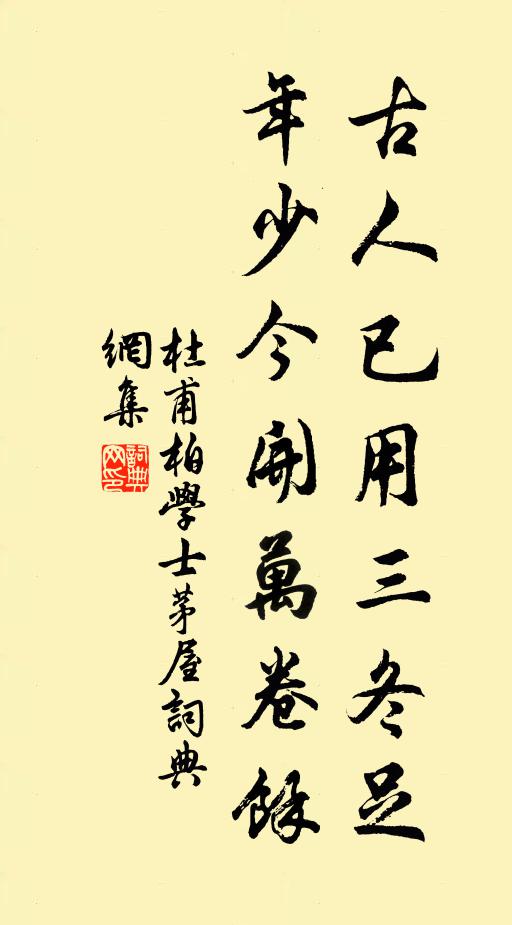 古人已用三冬足
年少今開萬卷餘
杜甫柏學士茅屋詞典
網集
詞典網印